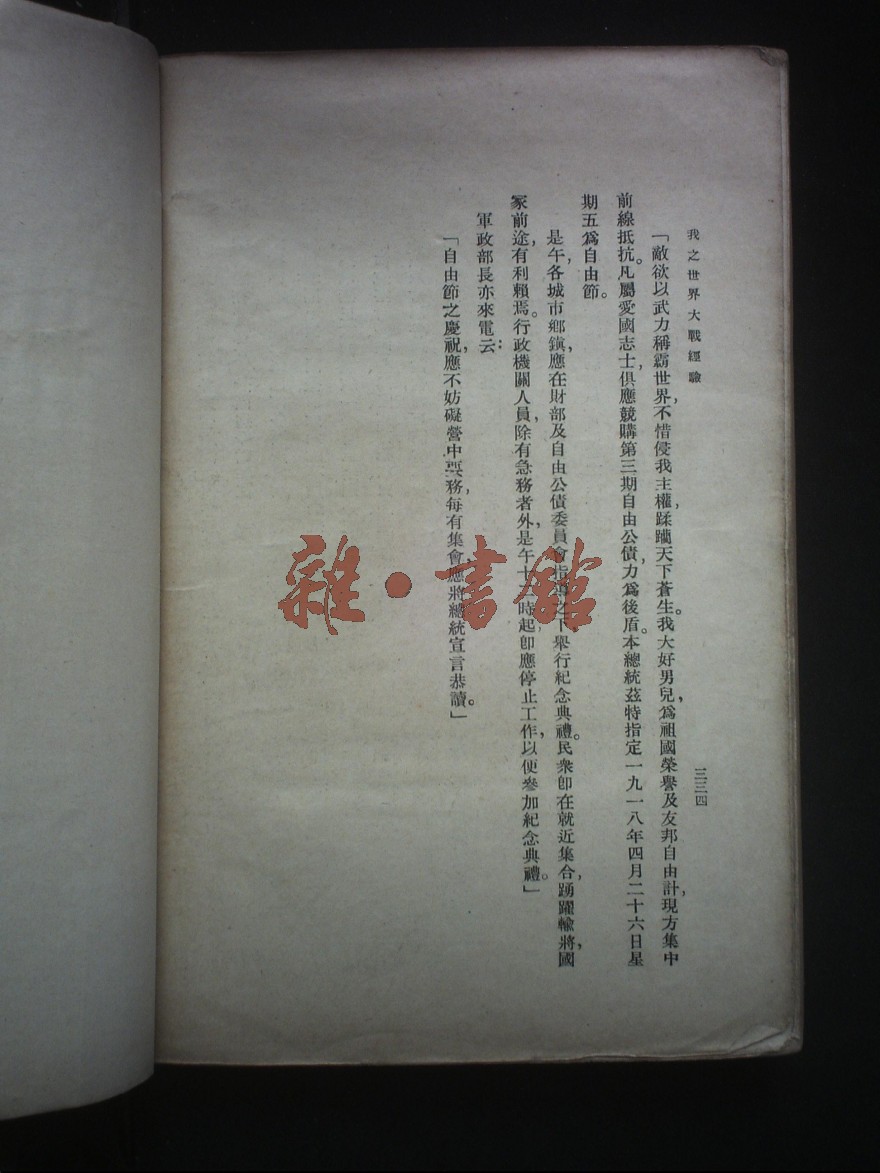 我之世界大戰經驗
三三四
「敵欲以武力稱霸世界，不惜侵我主權，蹂躪天下蒼生。我大好男兒，爲祖國榮譽及友邦自由計，現方集中
前線抵抗。凡屬愛國志士，俱應競購第三期自由公債，力爲後盾。本總統茲特指定一九一八年四月二十六日星
期五爲自由節。
是午，各城市鄉鎭，應在財部及自由公債委員會指導之下，舉行紀念典禮。民衆卽在就近集合，踴躍輸將，國
家前途，有利賴焉。行政機關人員，除有急務者外，是午十二時起卽應停止工作，以便參加紀念典禮。」
軍政部長亦來電云：
「自由節之慶祝，應不妨礙營中要務，每有集會，應將總統宣言恭讀。」
雜·書館